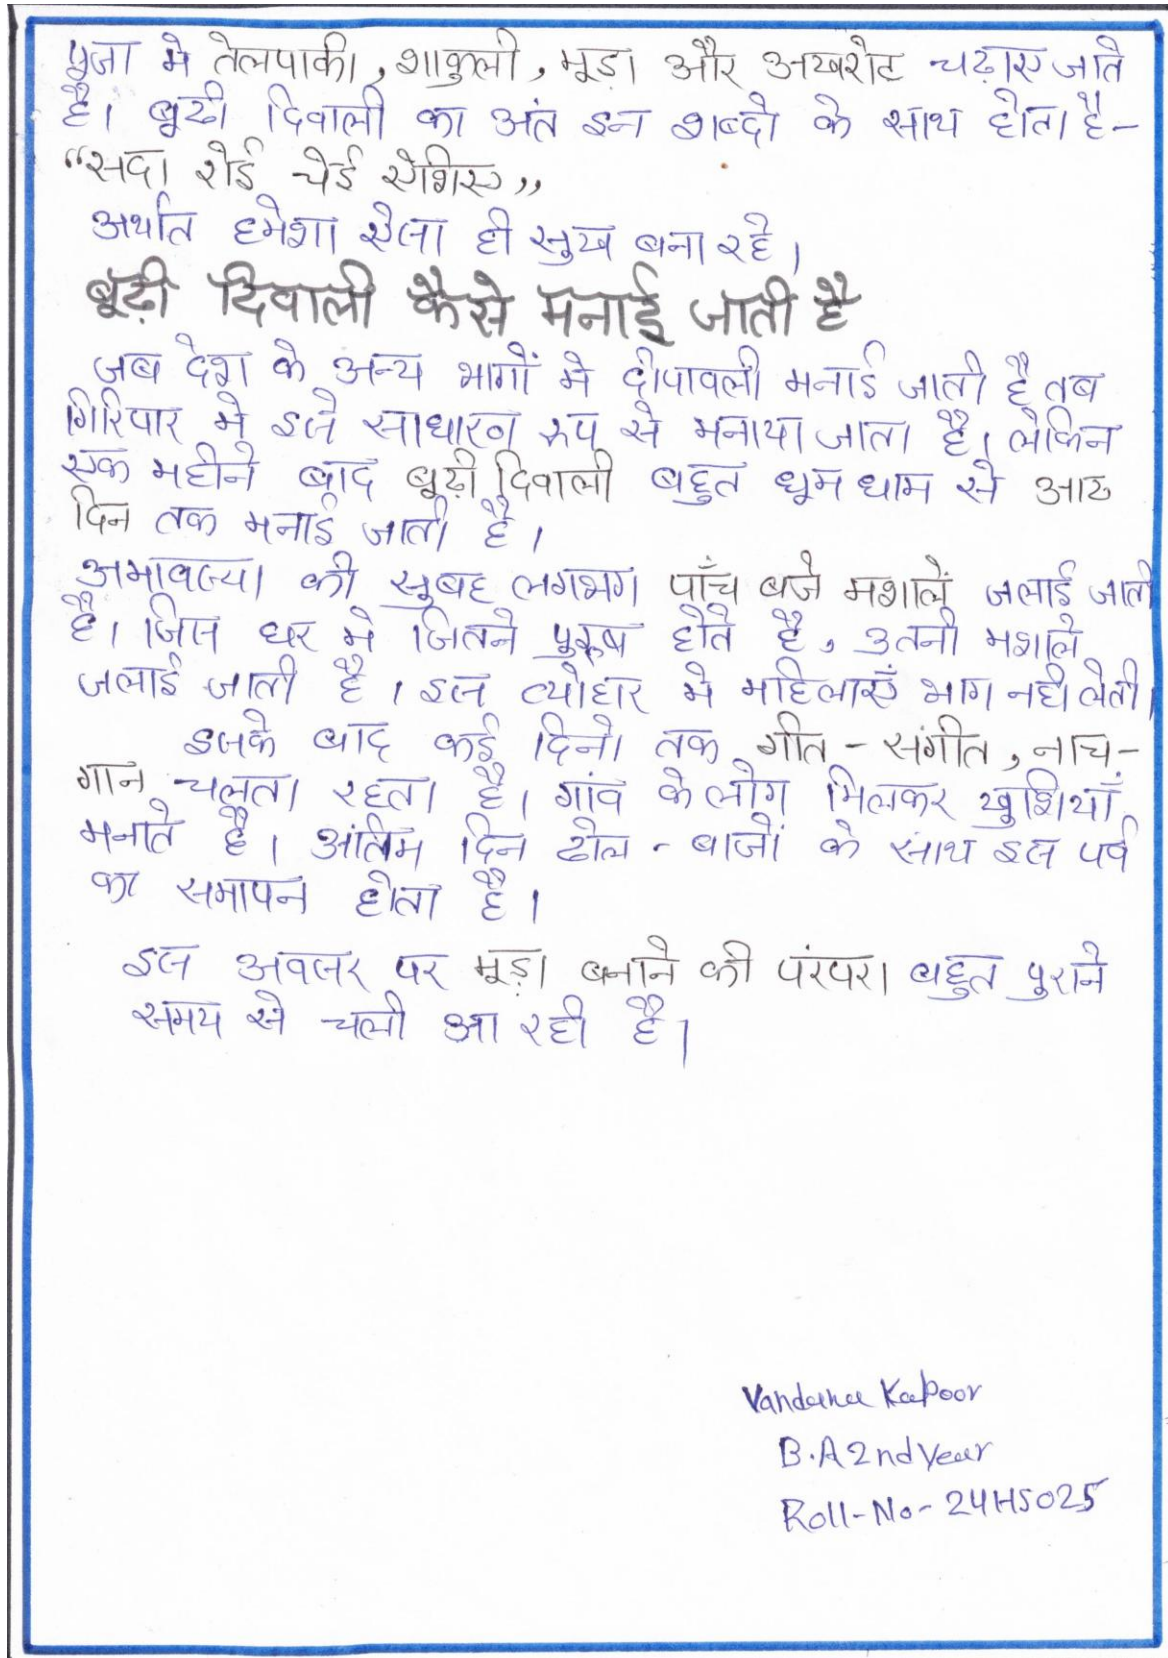 पूजा मे तेलपाकी, शाकुली, मूड़ा और अखरोट चढ़ाए जाते
है। बूढी दिवाली का अंत इन शब्दो के साथ होता है-
“सदा रोई चेई ऐशिए”
अर्थात हमेशा ऐसा ही सुख बना रहे।
बूढ़ी दिवाली कैसे मनाई जाती है
जब देश के अन्य भागों मे दीपावली मनाई जाती है तब
गिरिपार मे इसे साधारण रूप से मनाया जाता है। लेकिन
एक महीने बाद बूढ़ी दिवाली बहुत धूम धाम से आठ
दिन तक मनाई जाती है।
अमावस्या की सुबह लगभग पाँच बजे मशालें जलाई जाती
है। जिस घर मे जितने पुरूष होते है, उतनी मशाले
जलाई जाती है। इस त्योहार मे महिलाएँ भाग नही लेती।
इसके बाद कई दिनो तक गीत - संगीत, नाच-
गान चलता रहता है। गांव के लोग मिलकर खुशियाँ
मनाते है। अंतिम दिन ढोल - बाजों के साथ इस पर्व
का समापन होता है।
इस अवसर पर मूड़ा बनाने की परंपरा बहुत पुराने
समय से चली आ रही है।
Vandana Kapoor
B.A 2nd Year
Roll-No- 24HS025